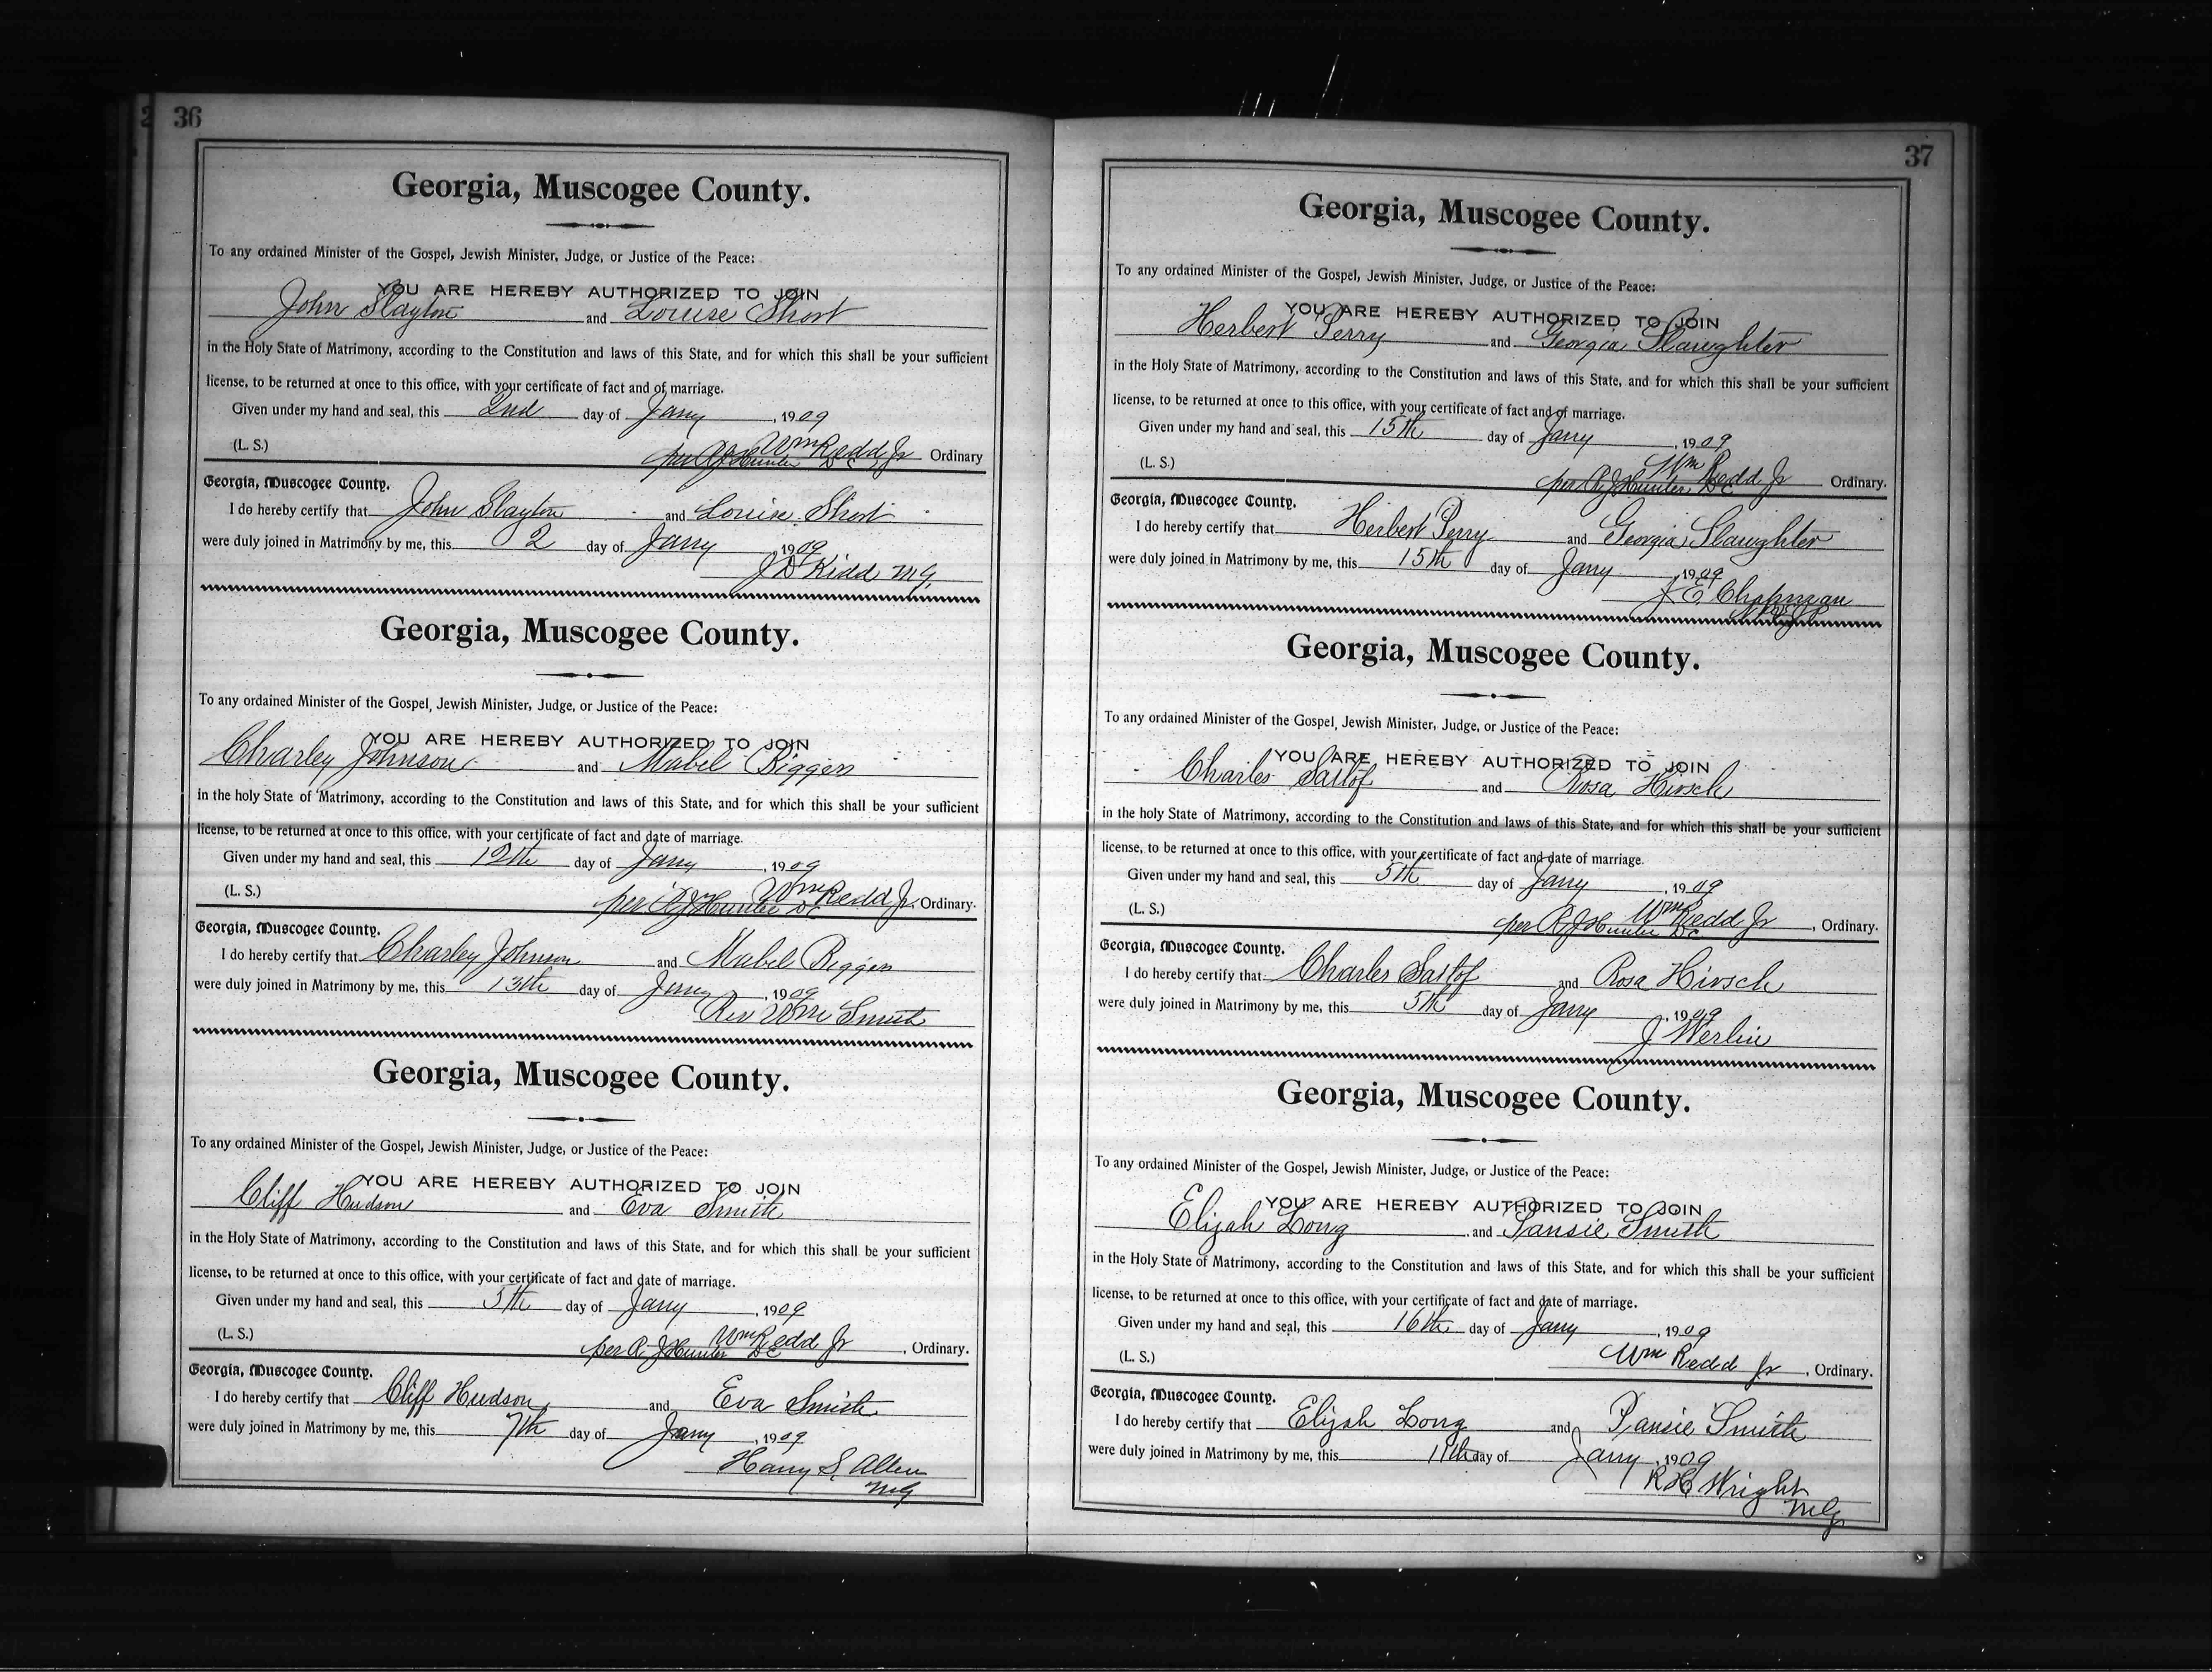 36
Georgia, Muscogee County.
To any ordained Minister of the Gospel, Jewish Minister, Judge, or Justice of the Peace:
YOU ARE HEREBY AUTHORIZED TO JOIN
John Slayton and Louise Short
in the Holy State of Matrimony, according to the Constitution and laws of this State, and for which this shall be your sufficient
license, to be returned at once to this office, with your certificate of fact and of marriage.
Given under my hand and seal, this 2nd day of Jany, 1909
(L. S.) Wm Redd Jr Ordinary
per A J Hunter D C
Georgia, Muscogee County.
I do hereby certify that John Slayton and Louise Short
were duly joined in Matrimony by me, this 2 day of Jany, 1909
J D Kidd M G,
Georgia, Muscogee County.
To any ordained Minister of the Gospel, Jewish Minister, Judge, or Justice of the Peace:
YOU ARE HEREBY AUTHORIZED TO JOIN
Charley Johnson and Mabel Biggers
in the holy State of Matrimony, according to the Constitution and laws of this State, and for which this shall be your sufficient
license, to be returned at once to this office, with your certificate of fact and date of marriage.
Given under my hand and seal, this 12th day of Jany, 1909
(L. S.) Wm Redd Jr, Ordinary.
per A J Hunter D C
Georgia, Muscogee County.
I do hereby certify that Charley Johnson and Mabel Biggers
were duly joined in Matrimony by me, this 13th day of Jany, 1909
Rev Wm Smith
Georgia, Muscogee County.
To any ordained Minister of the Gospel, Jewish Minister, Judge, or Justice of the Peace:
YOU ARE HEREBY AUTHORIZED TO JOIN
Cliff Hudson and Eva Smith
in the Holy State of Matrimony, according to the Constitution and laws of this State, and for which this shall be your sufficient
license, to be returned at once to this office, with your certificate of fact and date of marriage.
Given under my hand and seal, this 5th day of Jany, 1909
(L. S.) Wm Redd Jr, Ordinary.
per A J Hunter D C
Georgia, Muscogee County.
I do hereby certify that Cliff Hudson and Eva Smith
were duly joined in Matrimony by me, this 7th day of Jany, 1909
Harry S. Allen
MG
37
Georgia, Muscogee County.
To any ordained Minister of the Gospel, Jewish Minister, Judge, or Justice of the Peace:
YOU ARE HEREBY AUTHORIZED TO JOIN
Herbert Perry and Georgia Slaughter
in the Holy State of Matrimony, according to the Constitution and laws of this State, and for which this shall be your sufficient
license, to be returned at once to this office, with your certificate of fact and of marriage.
Given under my hand and seal, this 15th day of Jany, 1909
(L. S.) Wm Redd Jr Ordinary.
per A J Hunter D C
Georgia, Muscogee County.
I do hereby certify that Herbert Perry and Georgia Slaughter
were duly joined in Matrimony by me, this 15th day of Jany, 1909
J E Chapman
Georgia, Muscogee County.
To any ordained Minister of the Gospel, Jewish Minister, Judge, or Justice of the Peace:
YOU ARE HEREBY AUTHORIZED TO JOIN
Charles Saslof and Rosa Hirsch
in the holy State of Matrimony, according to the Constitution and laws of this State, and for which this shall be your sufficient
license, to be returned at once to this office, with your certificate of fact and date of marriage.
Given under my hand and seal, this 5th day of Jany, 1909
(L. S.) Wm Redd Jr, Ordinary.
per A J Hunter D C
Georgia, Muscogee County.
I do hereby certify that Charles Saslof and Rosa Hirsch
were duly joined in Matrimony by me, this 5th day of Jany, 1909
J Werlin
Georgia, Muscogee County.
To any ordained Minister of the Gospel, Jewish Minister, Judge, or Justice of the Peace:
YOU ARE HEREBY AUTHORIZED TO JOIN
Elijah Long and Pansie Smith
in the Holy State of Matrimony, according to the Constitution and laws of this State, and for which this shall be your sufficient
license, to be returned at once to this office, with your certificate of fact and date of marriage.
Given under my hand and seal, this 16th day of Jany, 1909
(L. S.) Wm Redd Jr, Ordinary.
Georgia, Muscogee County.
I do hereby certify that Elijah Long and Pansie Smith
were duly joined in Matrimony by me, this day of Jany, 1909
R H Wright
MG